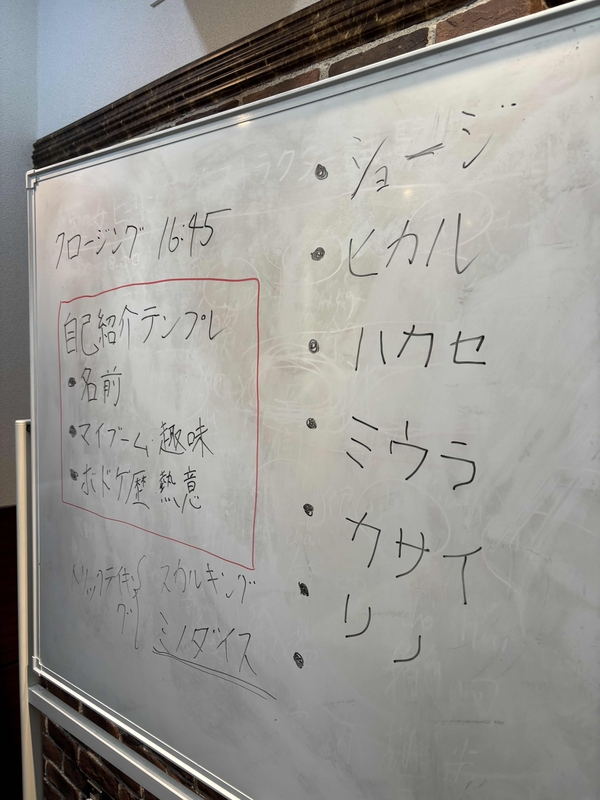 クロージング 16:45
自己紹介テンプレ
・名前
・マイブーム・趣味
・ボドゲ歴 熱意
トリックテイキング{ スカルキング
ミノダイス
・ショージ
・ヒカル
・ハカセ
・ミウラ
・カサイ
・リノ
・